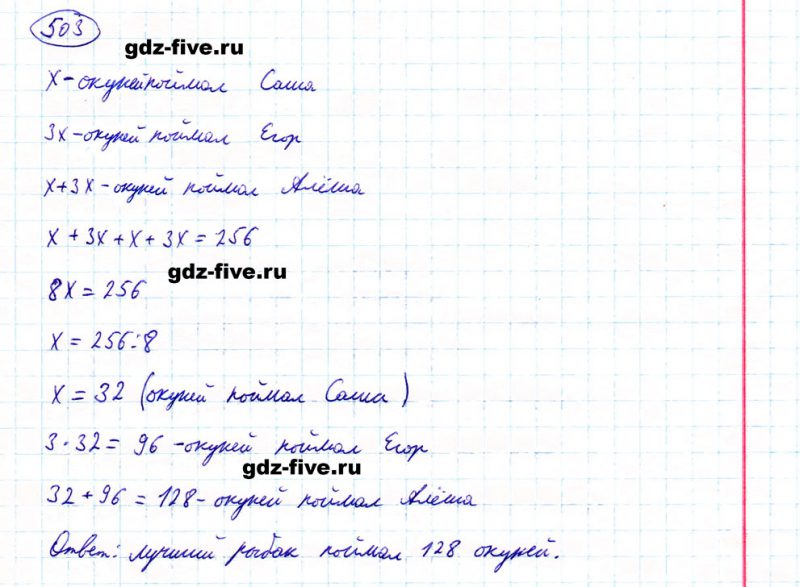 503
gdz-five.ru
x - окуней поймал Саша
3x - окуней поймал Егор
x + 3x - окуней поймал Алёша
x + 3x + x + 3x = 256
gdz-five.ru
8x = 256
x = 256:8
x = 32 (окуней поймал Саша)
3 · 32 = 96 - окуней поймал Егор
gdz-five.ru
32 + 96 = 128 - окуней поймал Алёша
Ответ: лучший рыбак поймал 128 окуней.